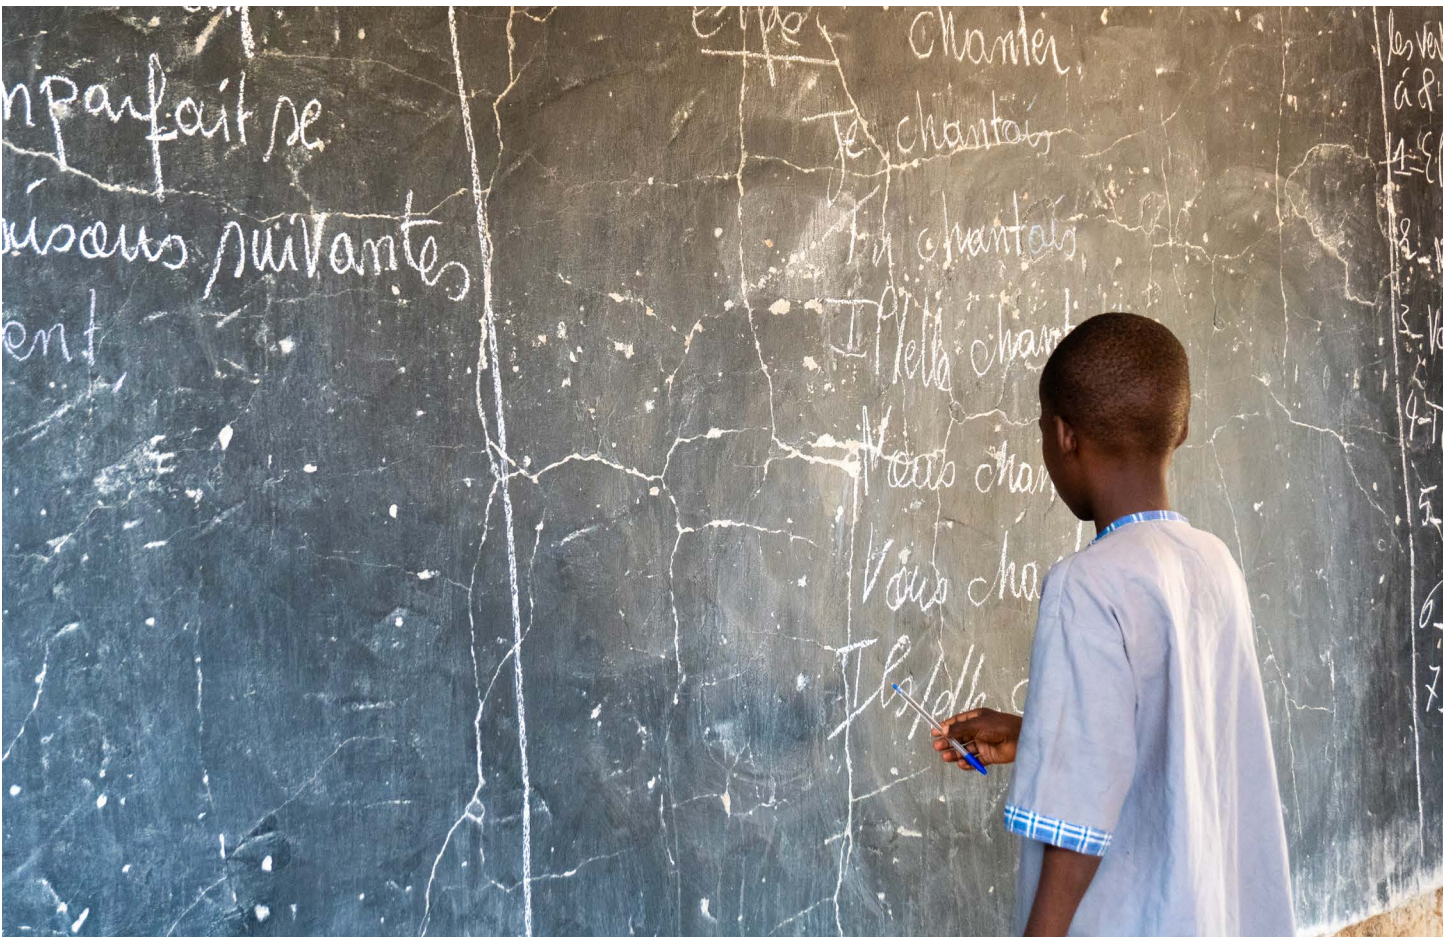 nparfait se
aisons suivantes
ent
Chanter.
Je chantais
Tu chantais
Il/elle chant
Nous chan
Vous cha
Ils/elle c
les ver
à 8
1-
2-
3-
4-
5-
6-
7-